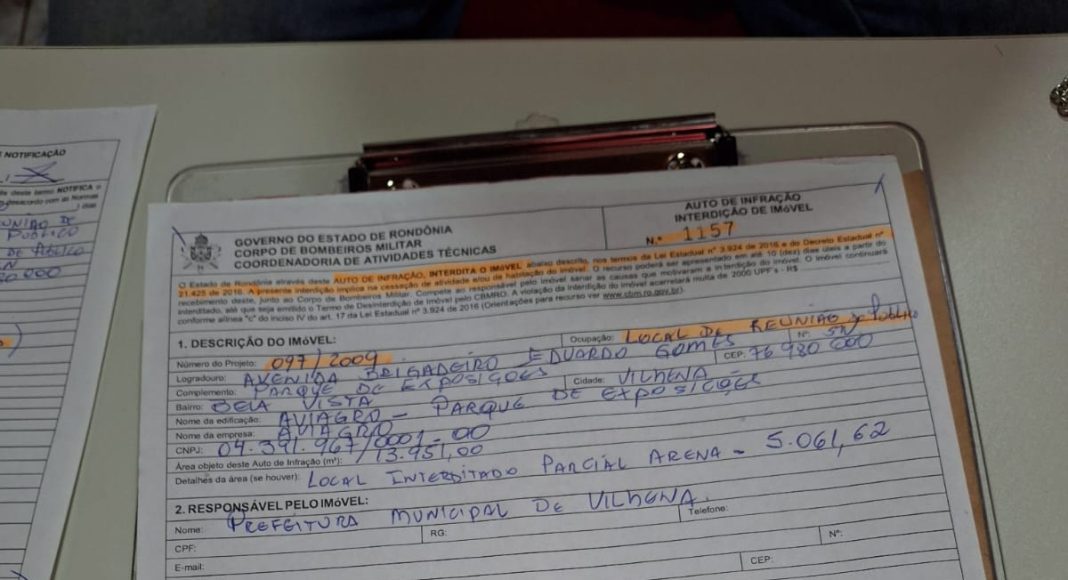 E NOTIFICAÇÃO
deste termo NOTIFICA o
desacordo com as Normas
) dias
REUNIÃO DE
PÚBLICO
DE PÚBLICO
GOVERNO DO ESTADO DE RONDÔNIA
CORPO DE BOMBEIROS MILITAR
COORDENADORIA DE ATIVIDADES TÉCNICAS
AUTO DE INFRAÇÃO
INTERDIÇÃO DE IMÓVEL
N.º 1157
O Estado de Rondônia através deste AUTO DE INFRAÇÃO, INTERDITA O IMÓVEL abaixo descrito, nos termos da Lei Estadual nº 3.924 de 2016 e do Decreto Estadual nº
21.425 de 2016. A presente interdição implica na cessação de atividade e/ou de habitação do imóvel. O recurso poderá ser apresentado em até 10 (dez) dias úteis a partir do
recebimento deste, junto ao Corpo de Bombeiros Militar. Compete ao responsável pelo imóvel sanar as causas que motivaram a interdição do imóvel. O imóvel continuará
interditado, até que seja emitido o Termo de Desinterdição de Imóvel pelo CBMRO. A violação da interdição do imóvel acarretará multa de 2000 UPF's - R$
conforme alínea "c" do inciso IV do art. 17 da Lei Estadual nº 3.924 de 2016 (Orientações para recurso ver www.cbm.ro.gov.br).
1. DESCRIÇÃO DO IMÓVEL:
Número do Projeto: 097/2009 Ocupação: LOCAL DE REUNIÃO de Público
Logradouro: AVENIDA BRIGADEIRO EDUARDO GOMES Nº: SN
Complemento: PARQUE DE EXPOSIÇÕES CEP: 76980000
Bairro: BELA VISTA Cidade: VILHENA
Nome da edificação: AVIAGRO - PARQUE DE EXPOSIÇÕES
Nome da empresa: AVIAGRO
CNPJ: 04.391.967/0001-00
Área objeto deste Auto de Infração (m²): 13.951,00
Detalhes da área (se houver): LOCAL INTERDITADO PARCIAL ARENA - 5.061,62
2. RESPONSÁVEL PELO IMÓVEL:
Nome: PREFEITURA MUNICIPAL DE VILHENA. Telefone:
CPF: RG: Nº:
E-mail: CEP: